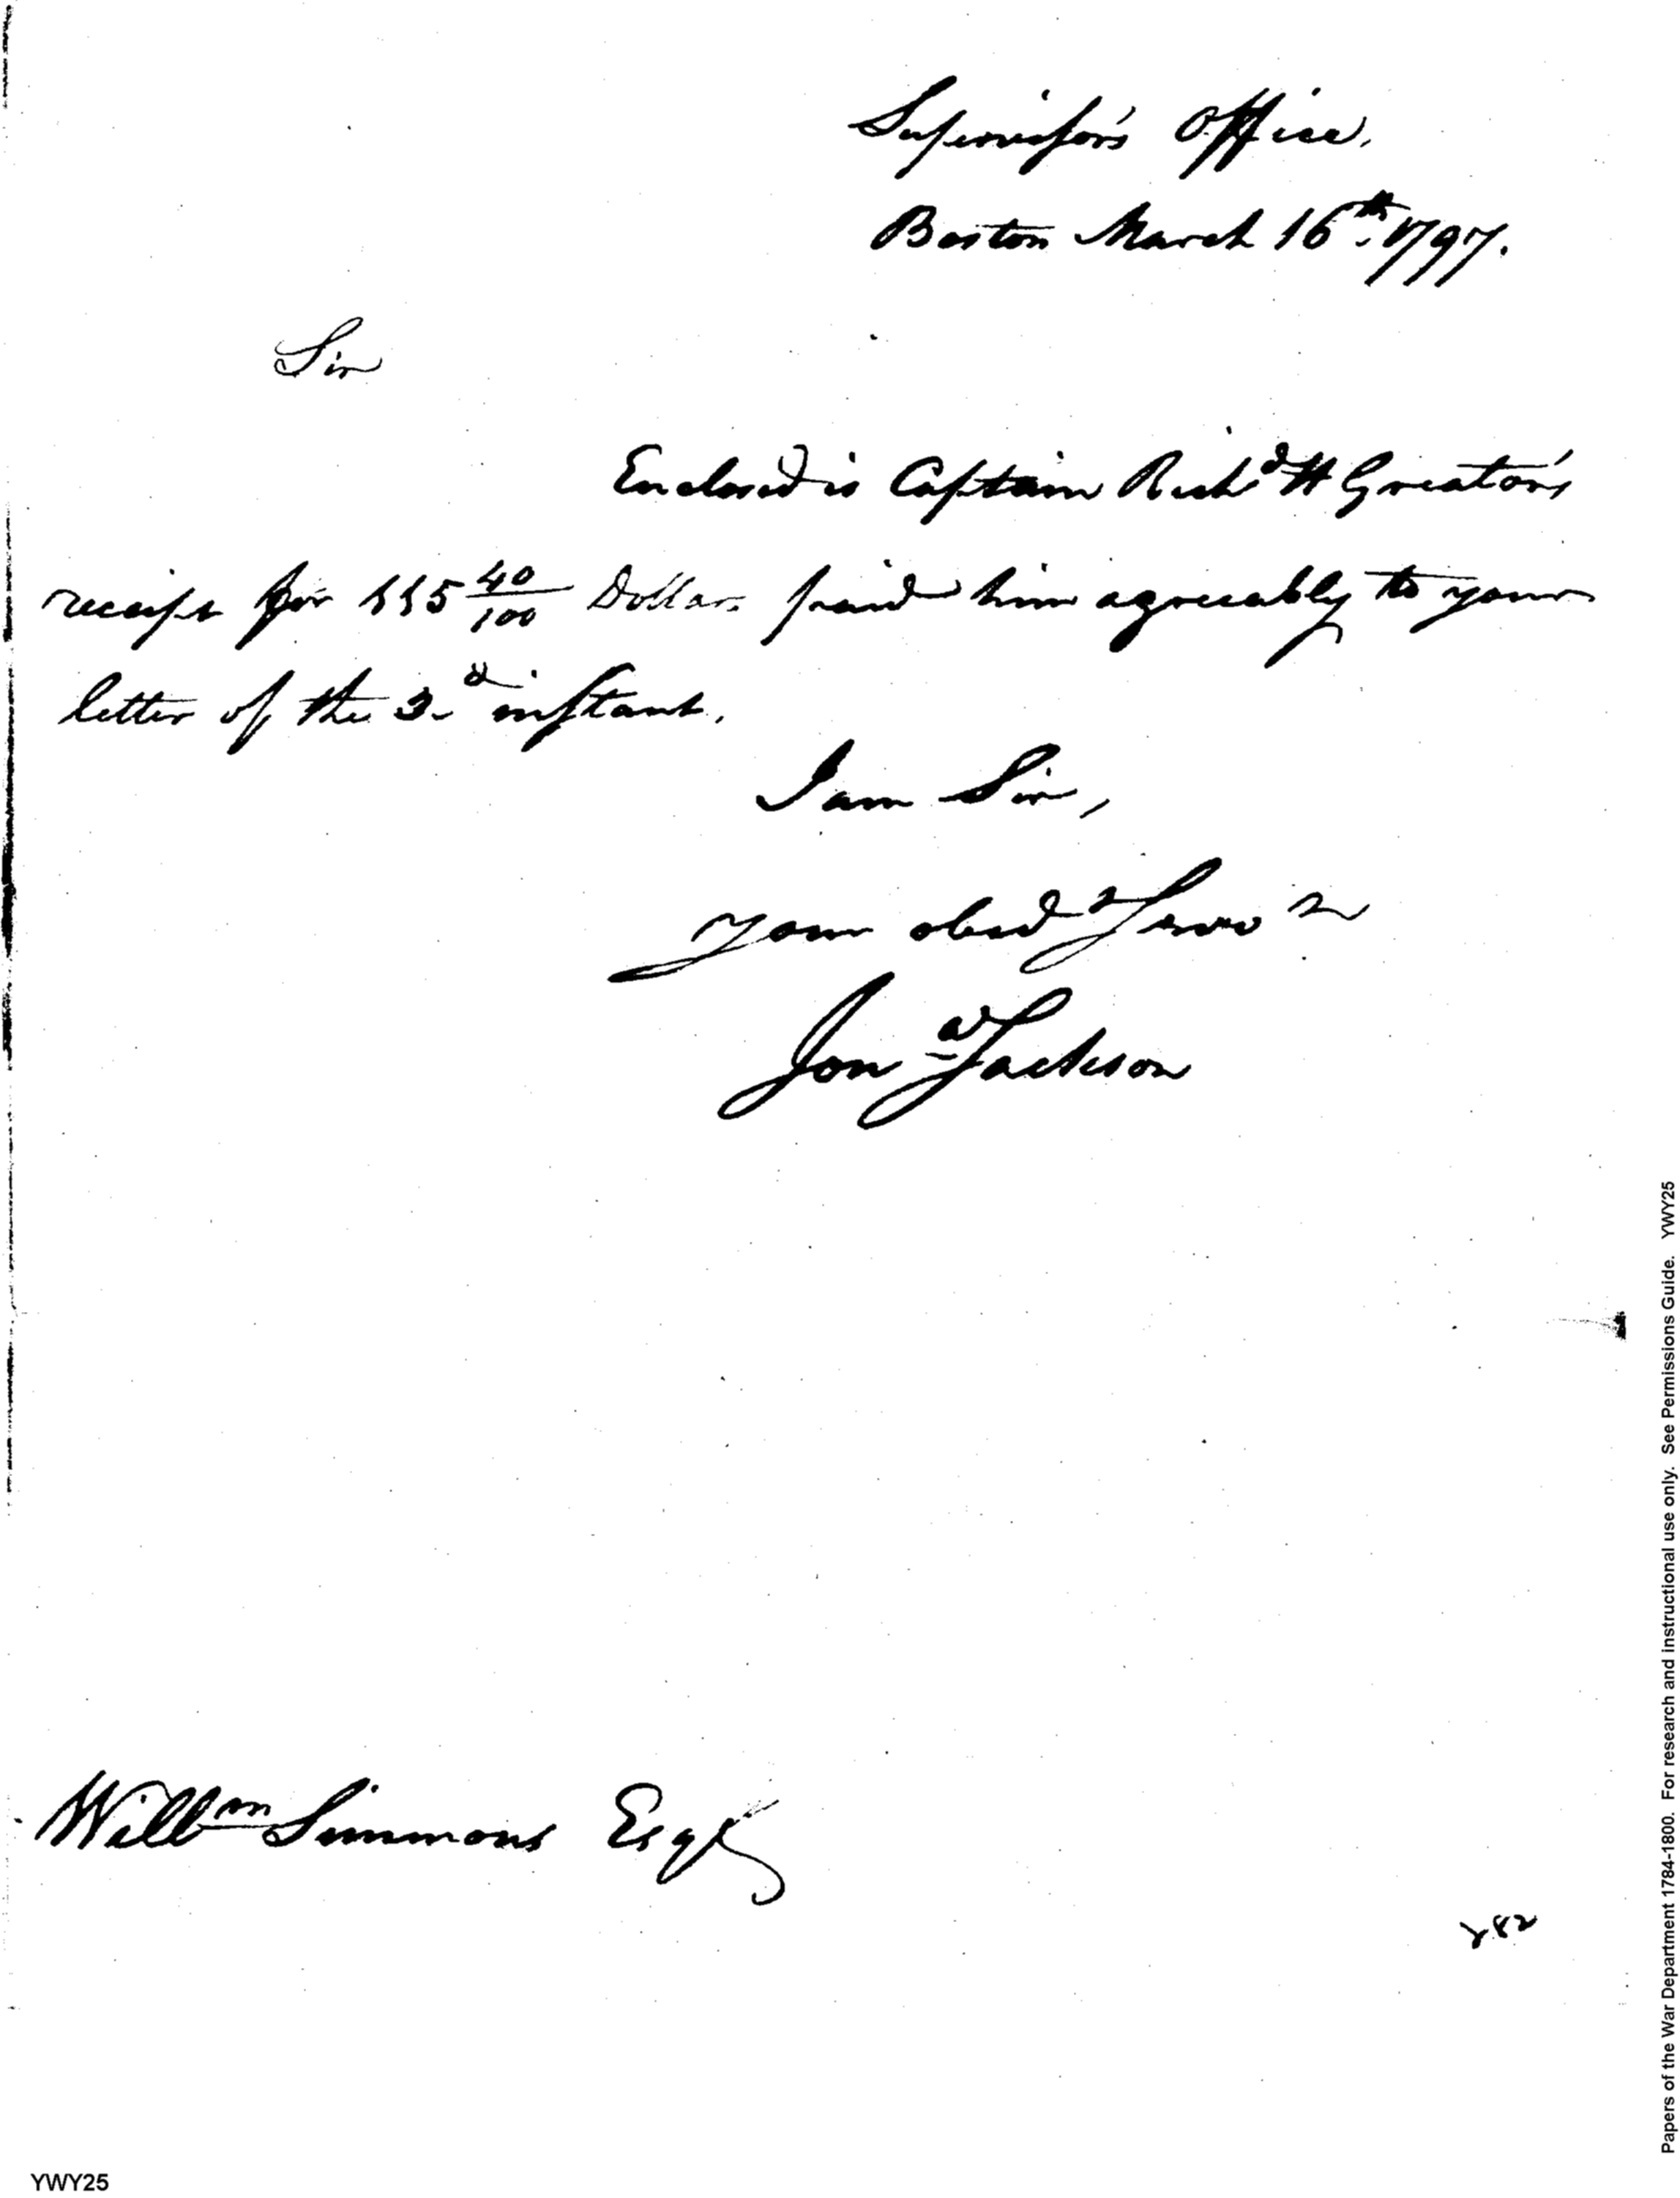 Supervisor's Office,
Boston March 16th 1797.
Sir
Enclosed is Captain Richd H Greaton's
receipt for 555 40/100 Dollars paid him agreeably to your
letter of the 3d instant.
I am Sir,
Your obed Serv
Jona Jackson
Willm Simmons Esqr
Papers of the War Department 1784-1800. For research and instructional use only. See Permissions Guide. YWY25
YWY25